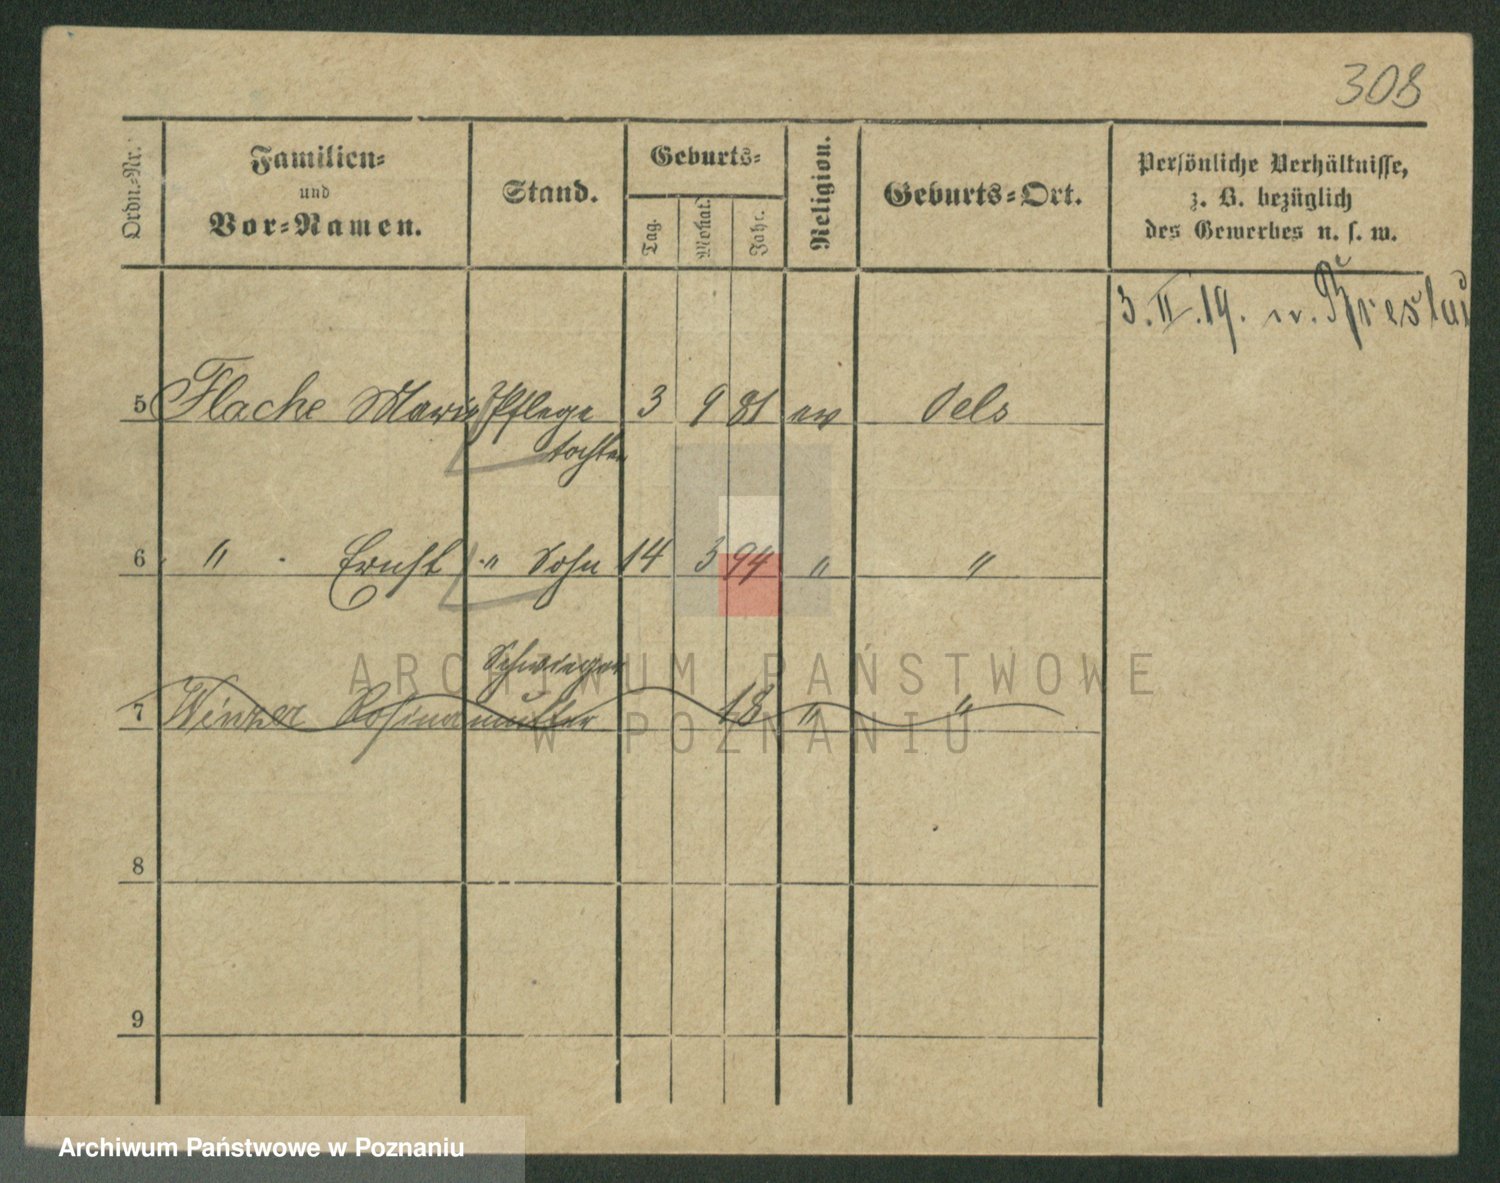 308
Ordn.-Nr.
Familien-
und
Vor-Namen.
Stand.
Geburts-
Tag.
Monat.
Jahr.
Religion.
Geburts-Ort.
Persönliche Verhältnisse,
z. B. bezüglich
des Gewerbes u. s. w.
3. II. 19. n. Breslau
5 Flache Marie Pflege 3 9 81 ev Oels
tochter
6 " Ernst " Sohn 14 3 94 " "
Schwieger
7 Winzer Rosina mutter 18 " "
8
9
ARCHIWUM PAŃSTWOWE
W POZNANIU
Archiwum Państwowe w Poznaniu